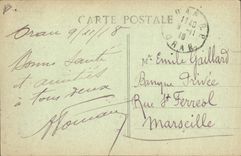 CARTE POSTALE
ORAN
11 40
11-11
18
ORAN
Oran 9/11/18
Bonne Santé
et amitiés
à tous deux
Mr Emile Gaillard
Banque Privée
Rue St Ferreol
Marseille